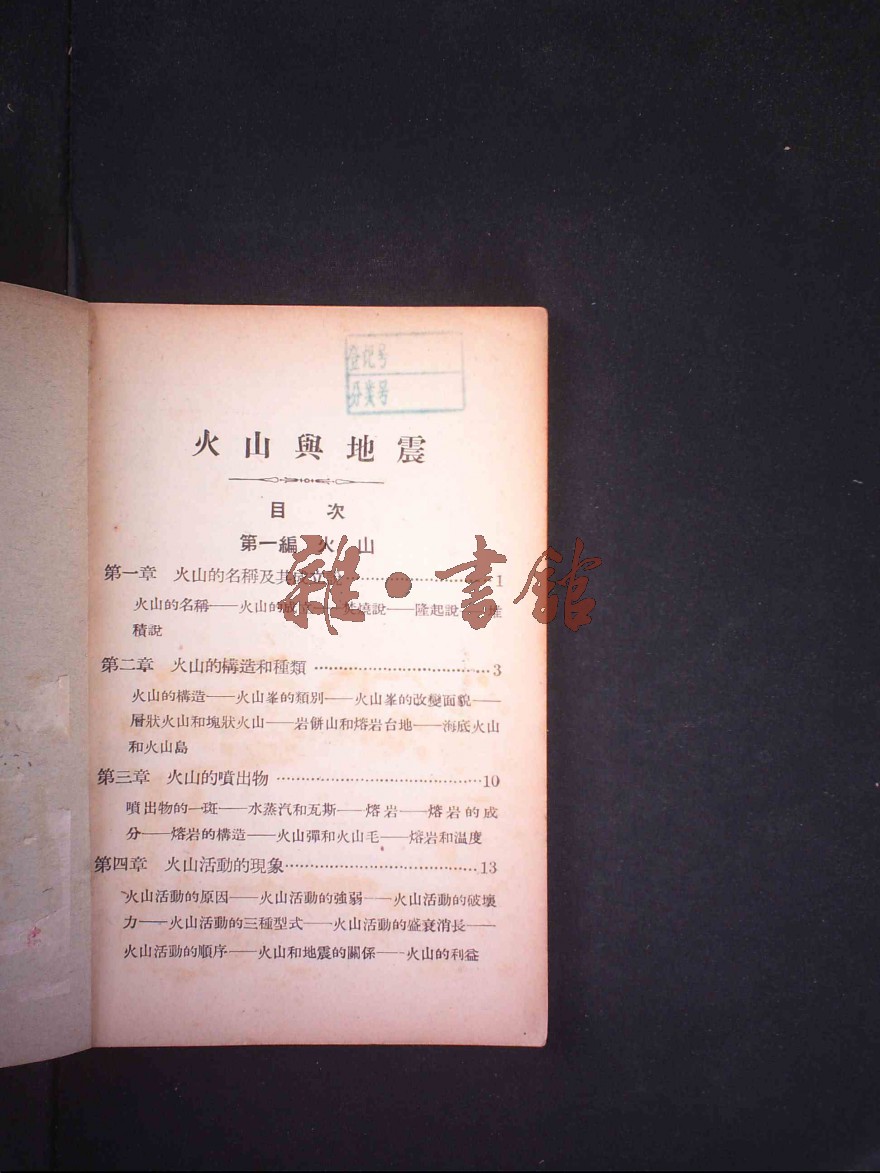 登記号
分类号
火山與地震
目次
第一編 火山
第一章 火山的名稱及其成立……………………1
火山的名稱——火山的成立——焚燒說——隆起說——堆
積說
第二章 火山的構造和種類……………………3
火山的構造——火山峯的類別——火山峯的改變面貌——
層狀火山和塊狀火山——岩餅山和熔岩台地——海底火山
和火山島
第三章 火山的噴出物……………………10
噴出物的一斑——水蒸汽和瓦斯——熔岩——熔岩的成
分——熔岩的構造——火山彈和火山毛——熔岩和溫度
第四章 火山活動的現象……………………13
火山活動的原因——火山活動的強弱——火山活動的破壞
力——火山活動的三種型式——火山活動的盛衰消長——
火山活動的順序——火山和地震的關係——火山的利益
雜·書館